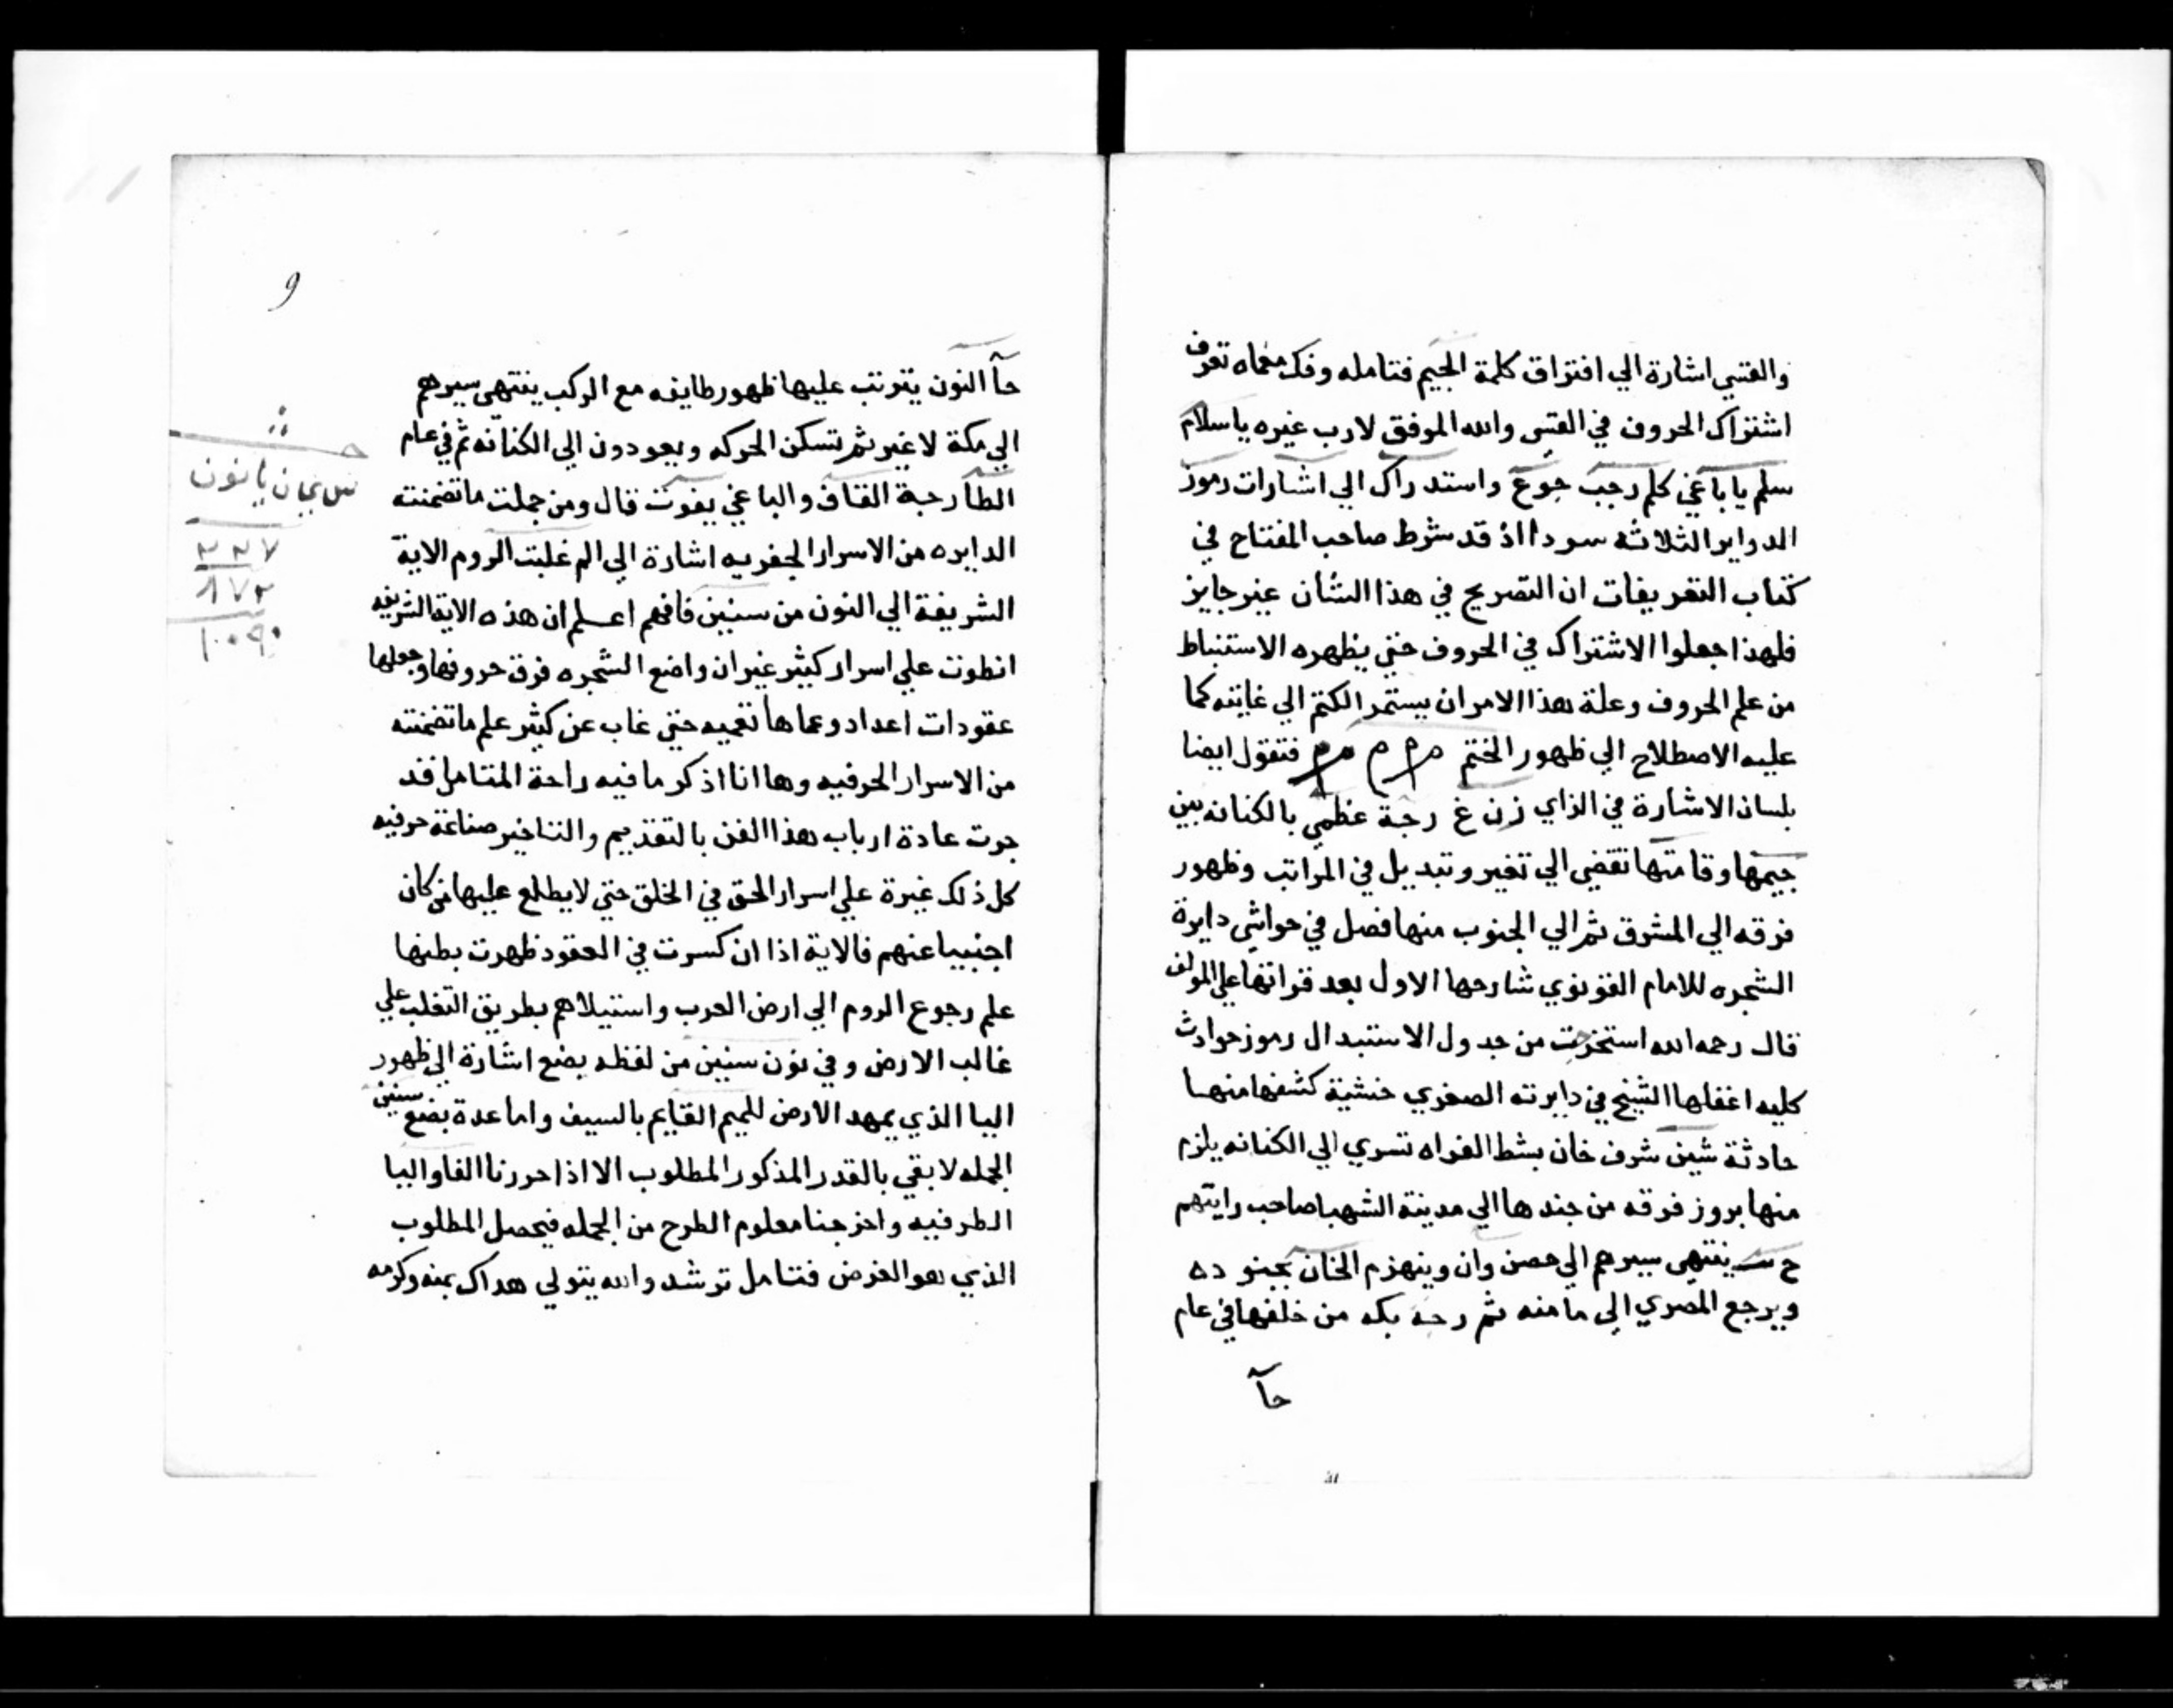 والقسي اشارة الي افتراق كلمة الجيم فتامله وفك معماه تعرف
اشتراك الحروف في القسي والله الموفق لارب غيره ياسلام
سلم يا باغي كلم رجب جوع واستدراك الي اشارات رموز
الدواير الثلاثه سودا اذ قد شرط صاحب المفتاح في
كتاب التعريفات ان التصريح في هذا الشان غير جايز
فلهذا جعلوا الاشتراك في الحروف حتي يظهره الاستنباط
من علم الحروف وعلة هذا الامر ان يستمر الكتم الي غايته كما
عليه الاصطلاح الي ظهور الختم م م م فنقول ايضا
بلسان الاشارة في الزاي زن غ رجة عظمي بالكنانه بين
جيمها وقامتها تقضي الي تغير وتبديل في المراتب وظهور
فرقه الي المشرق ثم الي الجنوب منها فصل في حواشي دايرة
الشجره للامام القونوي شارحها الاول بعد قراتها علي المولف
قال رحمه الله استخرجت من جدول الاستبدال رموز حوادث
كليه اغفلها الشيخ في دايرته الصغري خشية كشفها منها
حادثة شين شرف خان بشط الفراه تسري الي الكنانه يلزم
منها بروز فرقه من جندها الي مدينة الشهبا صاحب رايتهم
ح س ينتهي سيرهم الي حصن وان وينهزم الخان بجنوده
ويرجع المصري الي مامنه ثم رجة بكه من خلفها في عام
حآ
و
حآ النون يترتب عليها ظهور طايفه مع الركب ينتهي سيرهم
الي مكة لا غير ثم تسكن الحركه ويعودون الي الكنانه ثم في عام
الطا رجبة القاف والباغي يفوت قال ومن جملت ما تضمنته
الدايره من الاسرار الجفريه اشارة الي الم غلبت الروم الاية
الشريفة الي النون من سنين فافهم اعلم ان هذه الاية الشريفه
انطوت علي اسرار كثير غير ان واضع الشجره فرق حروفها وجعلها
عقودات اعداد وعماها تعميه حتي غاب عن كثير علم ما تضمنته
من الاسرار الحرفيه وها انا اذكر ما فيه راحة المتامل قد
جرت عادة ارباب هذا الفن بالتقديم والتاخير صناعة حرفيه
كل ذلك غيرة علي اسرار الحق في الخلق حتي لا يطلع عليها من كان
اجنبيا عنهم فالاية اذا ان كسرت في العقود ظهرت بطنها
علم رجوع الروم الي ارض العرب واستيلاهم بطريق التغلب علي
غالب الارض وفي نون سنين من لفظه بضع اشارة الي ظهور
اليا الذي يمهد الارض للميم القايم بالسيف واما عدة بضع سنين
الجمله لا بقي بالقدر المذكور المطلوب الا اذا حررنا الفا واليا
الطرفيه واخرجنا معلوم الطرح من الجمله فيحصل المطلوب
الذي هو الغرض فتامل ترشد والله يتولي هداك بمنه وكرمه
٢٢٧
٨٧٢
١٠٠٩٠